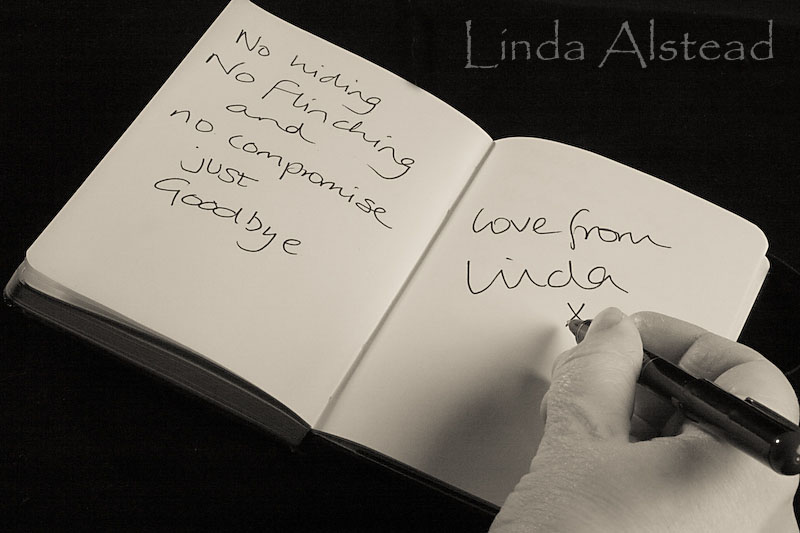 Linda Alstead
No hiding
No Flinching
and
no compromise
just
Goodbye
Love from
Linda
x